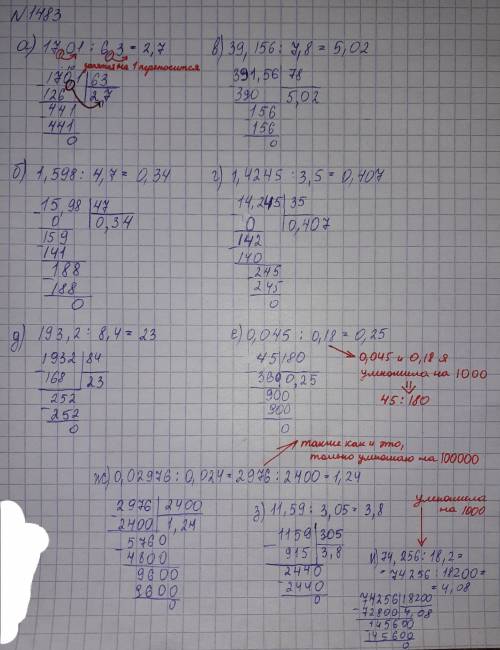 N1483
а) 17,01 : 6,3 = 2,7
запятая на 1 переносится
170,1 63
126 2,7
441
441
0
в) 39,156 : 7,8 = 5,02
391,56 78
390 5,02
156
156
0
б) 1,598 : 4,7 = 0,34
15,98 47
0 0,34
159
141
188
188
0
г) 1,4245 : 3,5 = 0,407
14,245 35
0 0,407
142
140
245
245
0
д) 193,2 : 8,4 = 23
1932 84
168 23
252
252
0
е) 0,045 : 0,18 = 0,25
45 180
0,25
900
900
0
0,045 и 0,18 я
умножила на 1000
45 : 180
также как и это,
только умножаю на 100000
ж) 0,02976 : 0,024 = 2976 : 2400 = 1,24
2976 2400
2400 1,24
5760
4800
9600
9600
0
з) 11,59 : 3,05 = 3,8
1159 305
915 3,8
2440
2440
0
умножила
на 1000
и) 74,256 : 18,2 =
= 74256 : 18200 =
= 4,08
74256 18200
72800 4,08
145600
145600
0